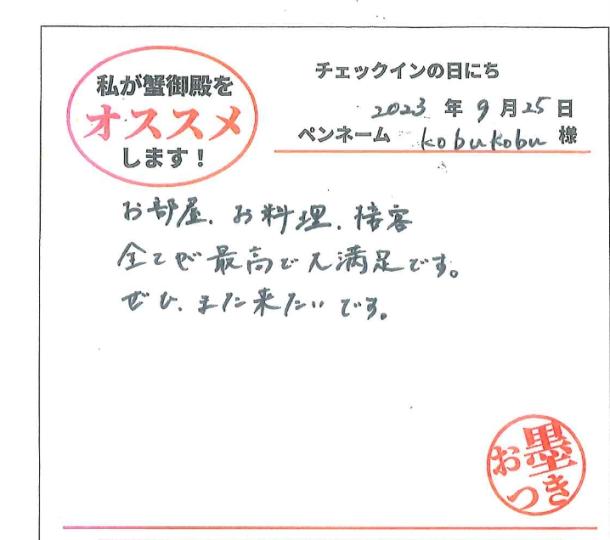 私が蟹御殿を
オススメ
します!
チェックインの日にち
2023 年 9 月 25 日
ペンネーム kobukobu 様
お部屋、お料理、接客
全てが最高で大満足です。
ぜひ、また来たいです。
お墨
つき